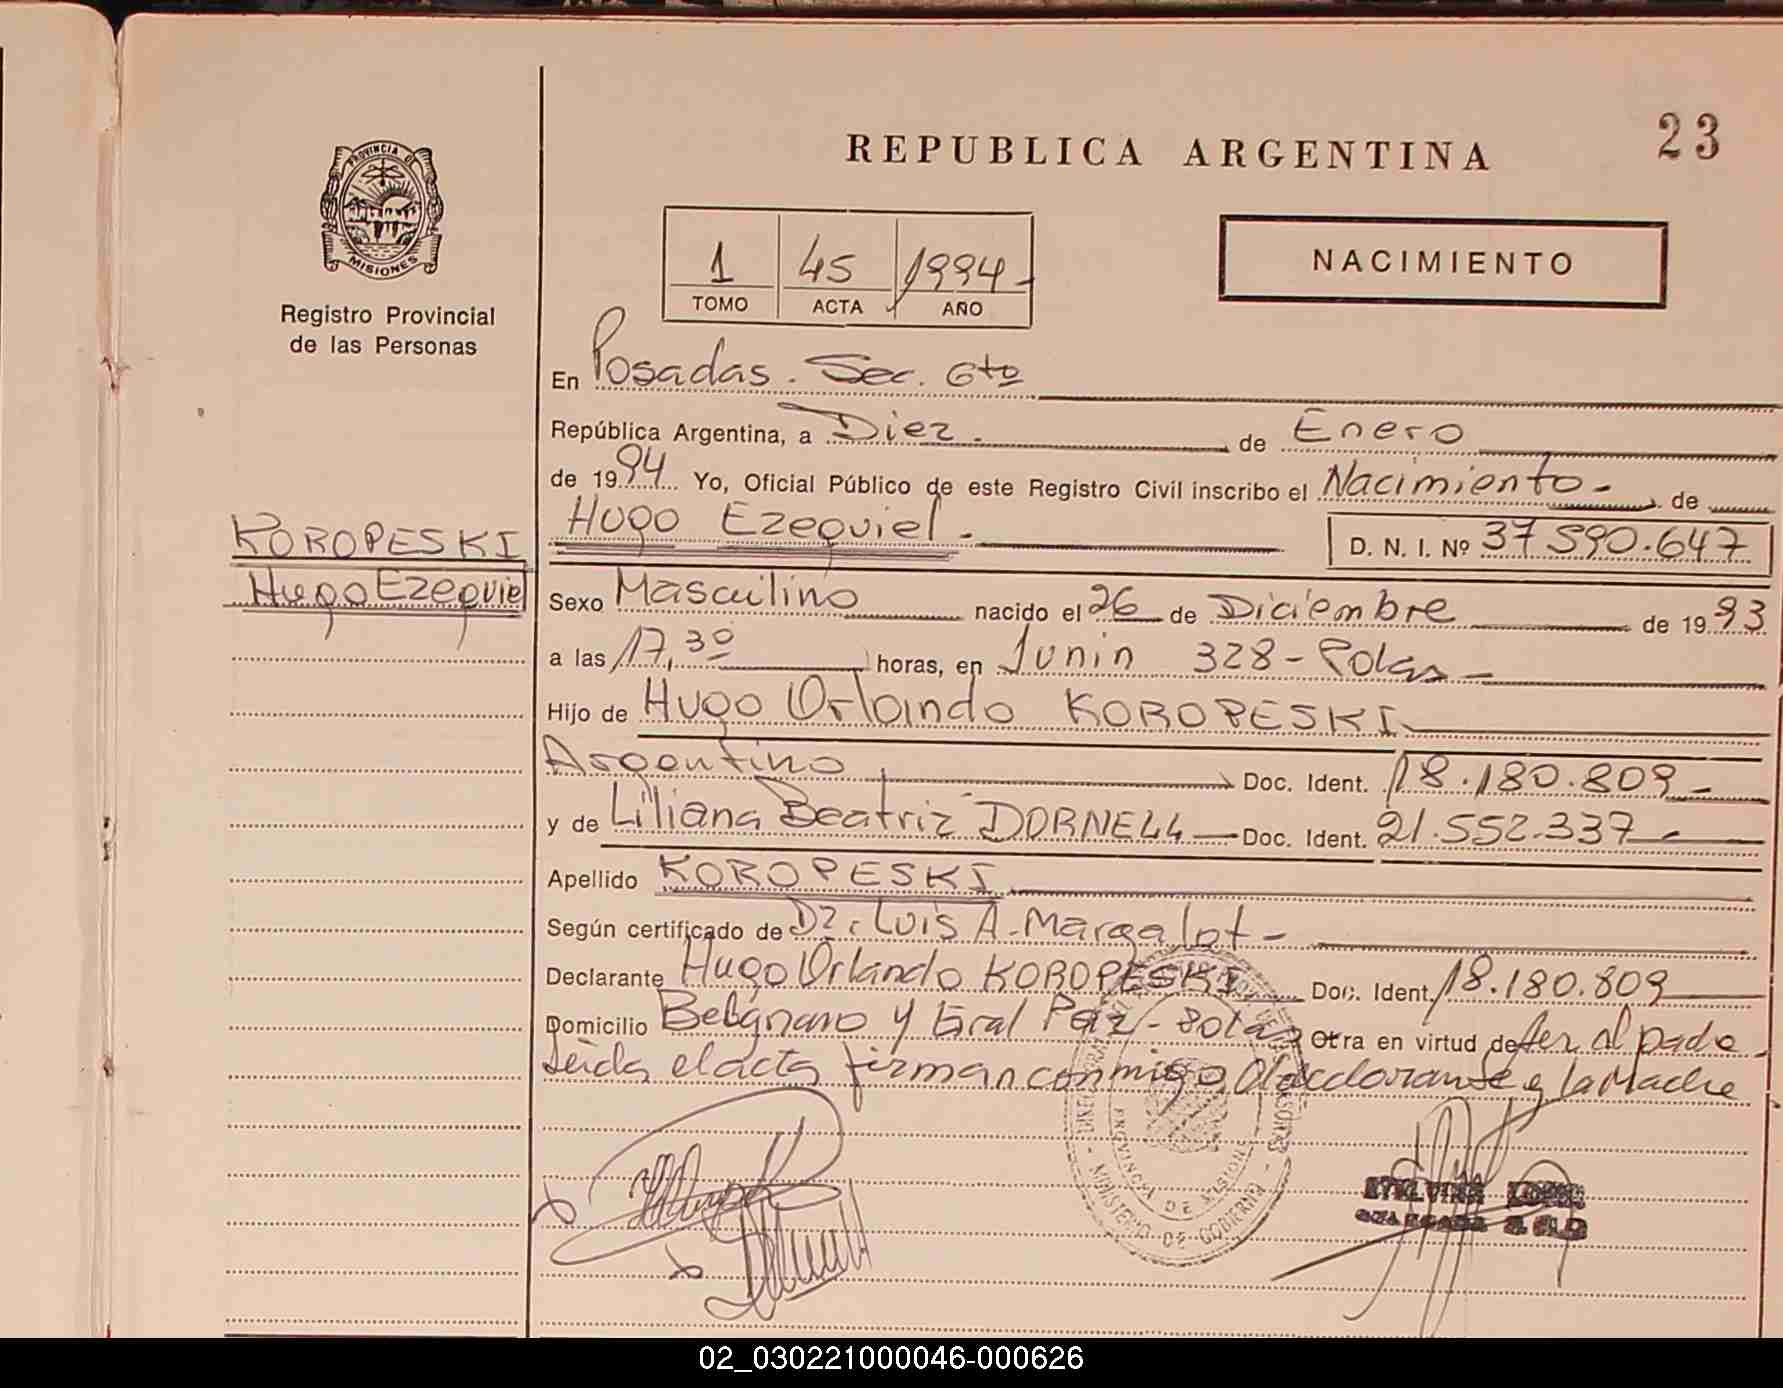 23
REPUBLICA ARGENTINA
PROVINCIA DE
MISIONES
Registro Provincial
de las Personas
NACIMIENTO
1 45 1994-
TOMO ACTA AÑO
En Posadas. Sec. 6to
República Argentina, a Diez. de Enero
de 1994 Yo, Oficial Público de este Registro Civil inscribo el Nacimiento- de
Hugo Ezequiel.- D. N. I. Nº 37590.647
KOROPESKI
Hugo Ezequiel
Sexo Masculino nacido el 26 de Diciembre de 1993
a las 17,30 horas, en Junin 328-Pdas-
Hijo de Hugo Orlando KOROPESKI
Argentino Doc. Ident. 18.180.809-
y de Liliana Beatriz DORNELL Doc. Ident. 21.552.337-
Apellido KOROPESKI
Según certificado de Dr. Luis A. Margalot-
Declarante Hugo Orlando KOROPESKI Doc. Ident. 18.180.809
Domicilio Belgrano y Gral Paz- Otra en virtud de ser el padre.
Leida el acta firman conmigo el declarante y la Madre
MINISTERIO DE GOBIERNO
PROVINCIA DE MISIONES
02_030221000046-000626